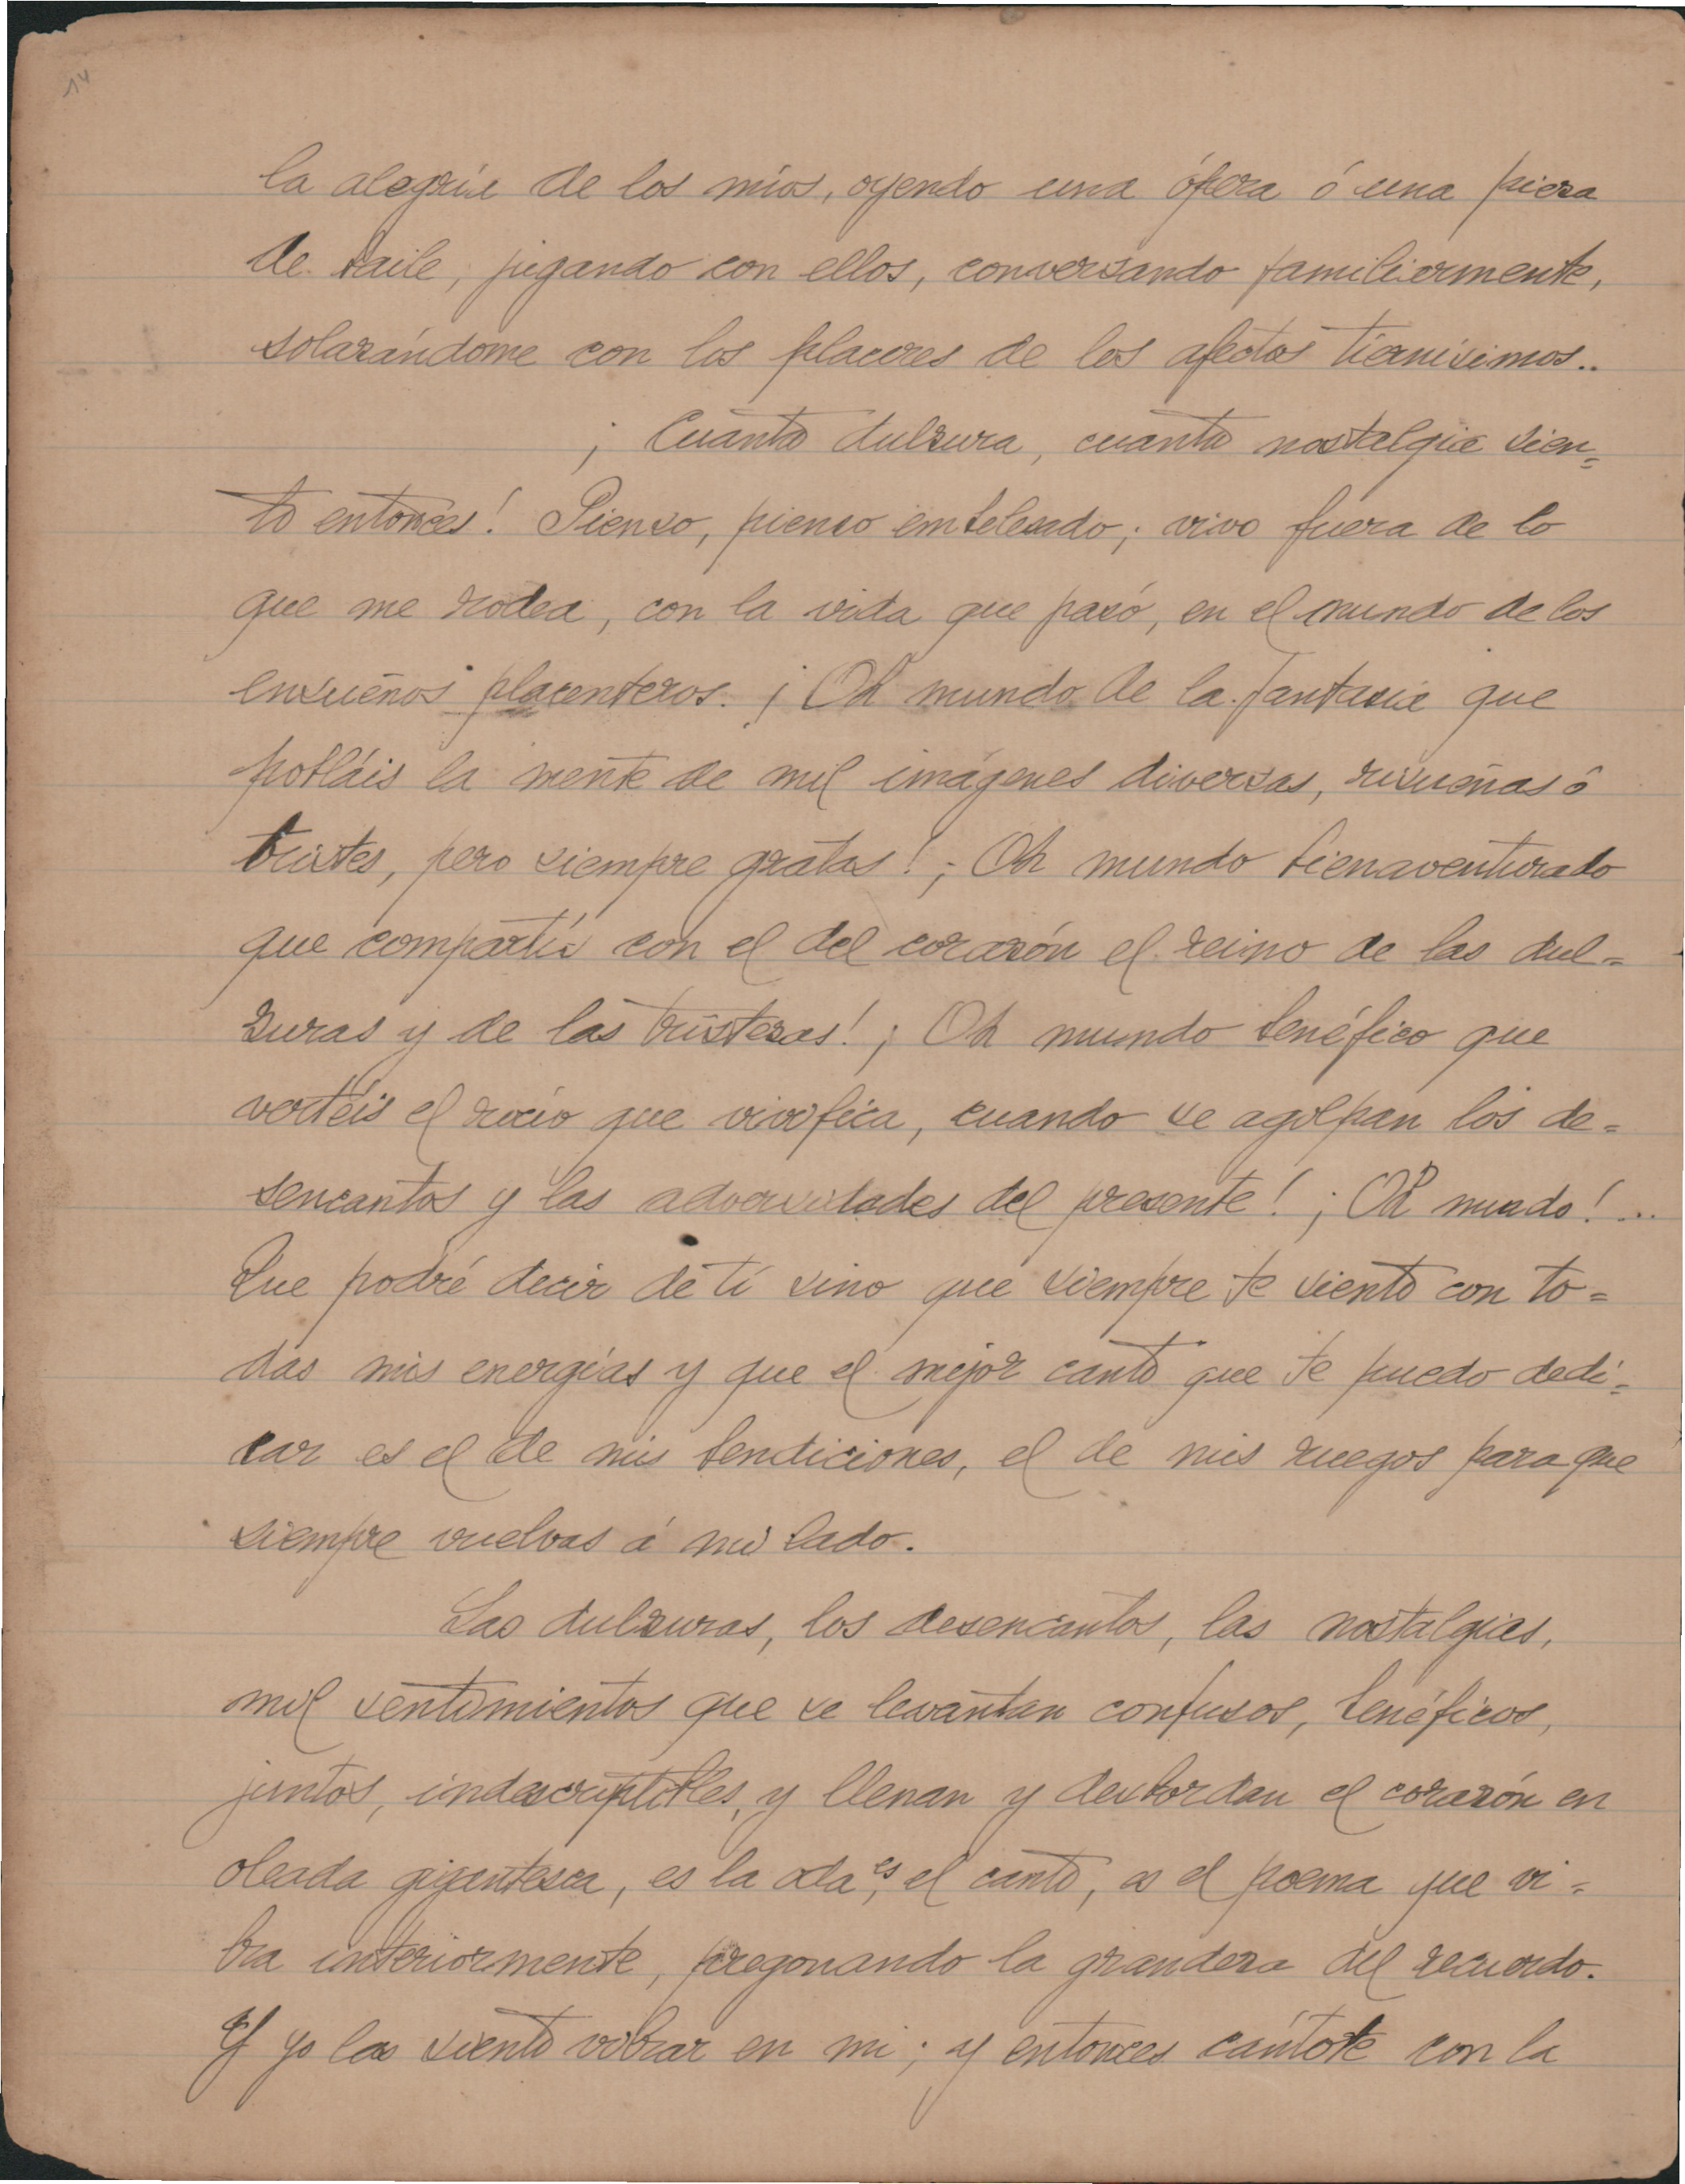 14
la alegría de los míos, oyendo una ópera ó una pieza
de baile, jugando con ellos, conversando familiarmente,
solazándome con los placeres de los afectos tiernísimos..
¡Cuánta dulzura, cuanta nostalgia sien=
to entonces! Pienso, pienso embelesado; vivo fuera de lo
que me rodea, con la vida que pasó, en el mundo de los
ensueños placenteros. ¡Oh mundo de la fantasía que
pobláis la mente de mil imágenes diversas, risueñas ó
tristes, pero siempre gratas! ¡Oh mundo bienaventurado
que compartís con el del corazón el reino de las dul=
zuras y de las tristezas! ¡Oh mundo benéfico que
vertéis el rocío que vivifica, cuando se agolpan los de=
sencantos y las adversidades del presente! ¡Oh mundo!...
Que podré decir de tí sino que siempre te siento con to=
das mis energías y que el mejor canto que te puedo dedi=
car es el de mis bendiciones, el de mis ruegos para que
siempre vuelvas á mi lado.
Las dulzuras, los desencantos, las nostalgias,
mil sentimientos que se levantan confusos, benéficos,
juntos, indescriptibles, y llenan y desbordan el corazón en
oleada gigantesca, es la oda, es el canto, es el poema que vi=
bra interiormente, pregonando la grandeza del recuerdo.
Y yo las siento vibrar en mi; y entonces cántote con la